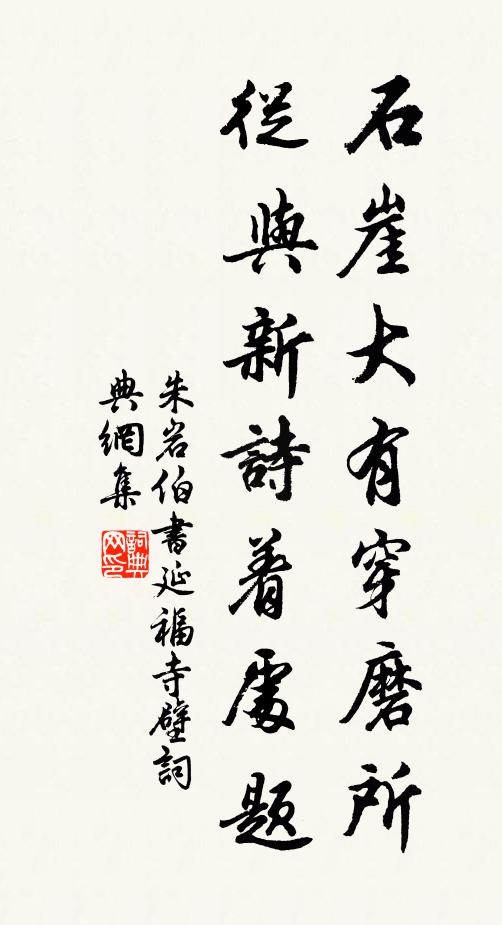 石崖大有穿磨所
從與新詩着處題
朱岩伯書延福寺壁詞
典網集
詞典网印